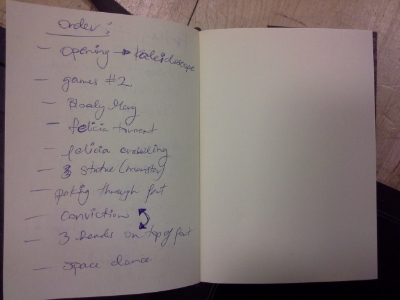 order:
- opening → Kaleidoscope
- games #2
- Bloody Mary
- felicia torment
- felicia
- 3 statue (monster)
- poking through
- conviction
- 3 heads on top of
- space dance